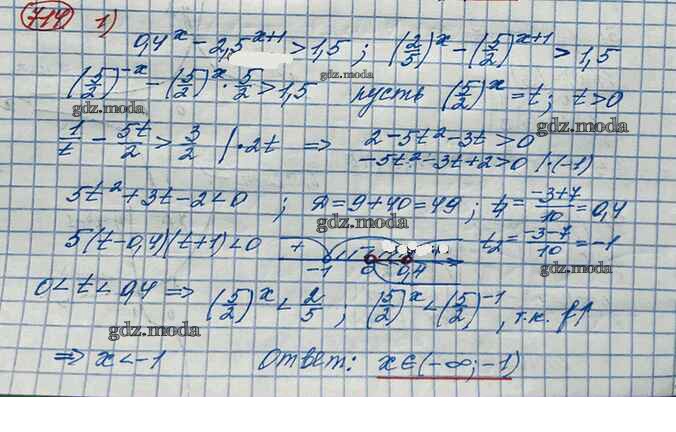 714 1)
0,4^x - 2,5^{x+1} > 1,5 ; (2/5)^x - (5/2)^{x+1} > 1,5
gdz.moda
(5/2)^{-x} - (5/2)^x · 5/2 > 1,5 пусть (5/2)^x = t; t>0
gdz.moda gdz.moda
1/t - 5t/2 > 3/2 |·2t ⇒ 2-5t²-3t>0
-5t²-3t+2>0 |·(-1)
5t²+3t-2<0 ; D=9+40=49 ; t₁=(-3+7)/10=0,4
gdz.moda
5(t-0,4)(t+1)<0 + - -1 0 0,4 t₂=(-3-7)/10=-1
0<t<0,4 ⇒ (5/2)^x < 2/5 ; (5/2)^x < (5/2)^{-1}, т.к. f↑
gdz.moda
⇒ x<-1 Ответ: x∈(-∞;-1)
gdz.moda